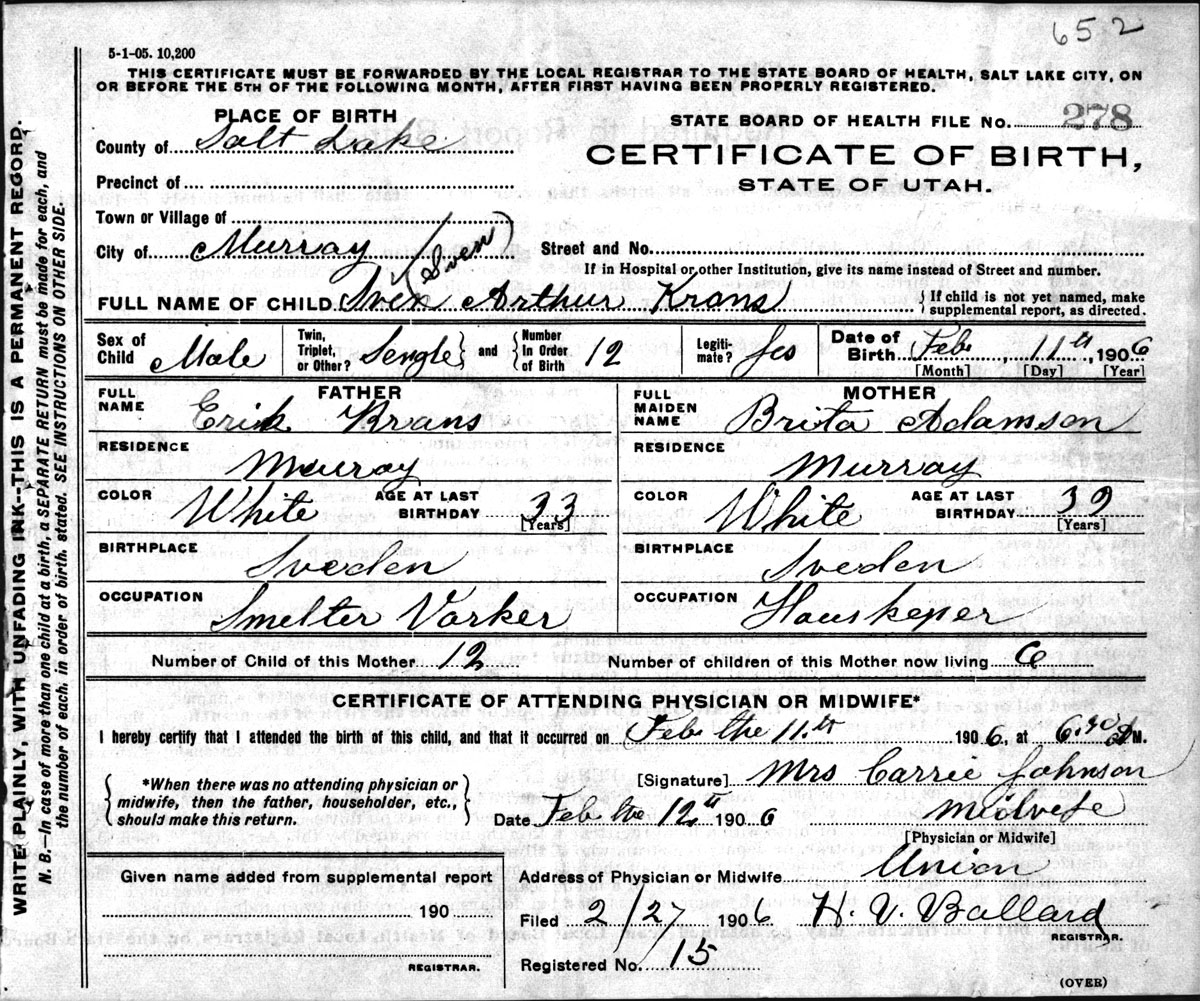 652
5-1-05. 10,200
THIS CERTIFICATE MUST BE FORWARDED BY THE LOCAL REGISTRAR TO THE STATE BOARD OF HEALTH, SALT LAKE CITY, ON
OR BEFORE THE 5TH OF THE FOLLOWING MONTH, AFTER FIRST HAVING BEEN PROPERLY REGISTERED.
WRITE PLAINLY, WITH UNFADING INK--THIS IS A PERMANENT RECORD.
N. B.—In case of more than one child at a birth, a SEPARATE RETURN must be made for each, and
the number of each, in order of birth, stated. SEE INSTRUCTIONS ON OTHER SIDE.
PLACE OF BIRTH
County of Salt Lake
Precinct of
Town or Village of
City of Murray
STATE BOARD OF HEALTH FILE No. 278
CERTIFICATE OF BIRTH,
STATE OF UTAH.
Street and No.
If in Hospital or other Institution, give its name instead of Street and number.
(Sven)
FULL NAME OF CHILD Sven Arthur Krans
{ If child is not yet named, make
supplemental report, as directed.
Sex of Child Male
Twin, Triplet, or Other? Sengle } and { Number In Order of Birth 12
Legitimate? Jes
Date of Birth Feb, 11th, 1906
[Month] [Day] [Year]
FATHER
FULL NAME Erik Krans
RESIDENCE Murray
COLOR White AGE AT LAST BIRTHDAY 33 [Years]
BIRTHPLACE Sveden
OCCUPATION Smelter Varker
MOTHER
FULL MAIDEN NAME Brita Adamson
RESIDENCE Murray
COLOR White AGE AT LAST BIRTHDAY 39 [Years]
BIRTHPLACE Sveden
OCCUPATION Houskeper
Number of Child of this Mother 12 Number of children of this Mother now living 6
CERTIFICATE OF ATTENDING PHYSICIAN OR MIDWIFE*
I hereby certify that I attended the birth of this child, and that it occurred on Feb the 11.th 1906, at 6 A M.
*When there was no attending physician or
midwife, then the father, householder, etc.,
should make this return.
[Signature] Mrs Carrie Johnson
Date Feb the 12th 1906 Midvefe
[Physician or Midwife]
Given name added from supplemental report
190
REGISTRAR.
Address of Physician or Midwife Union
Filed 2/27 1906 H. V. Ballard
REGISTRAR.
Registered No. 15
(OVER)